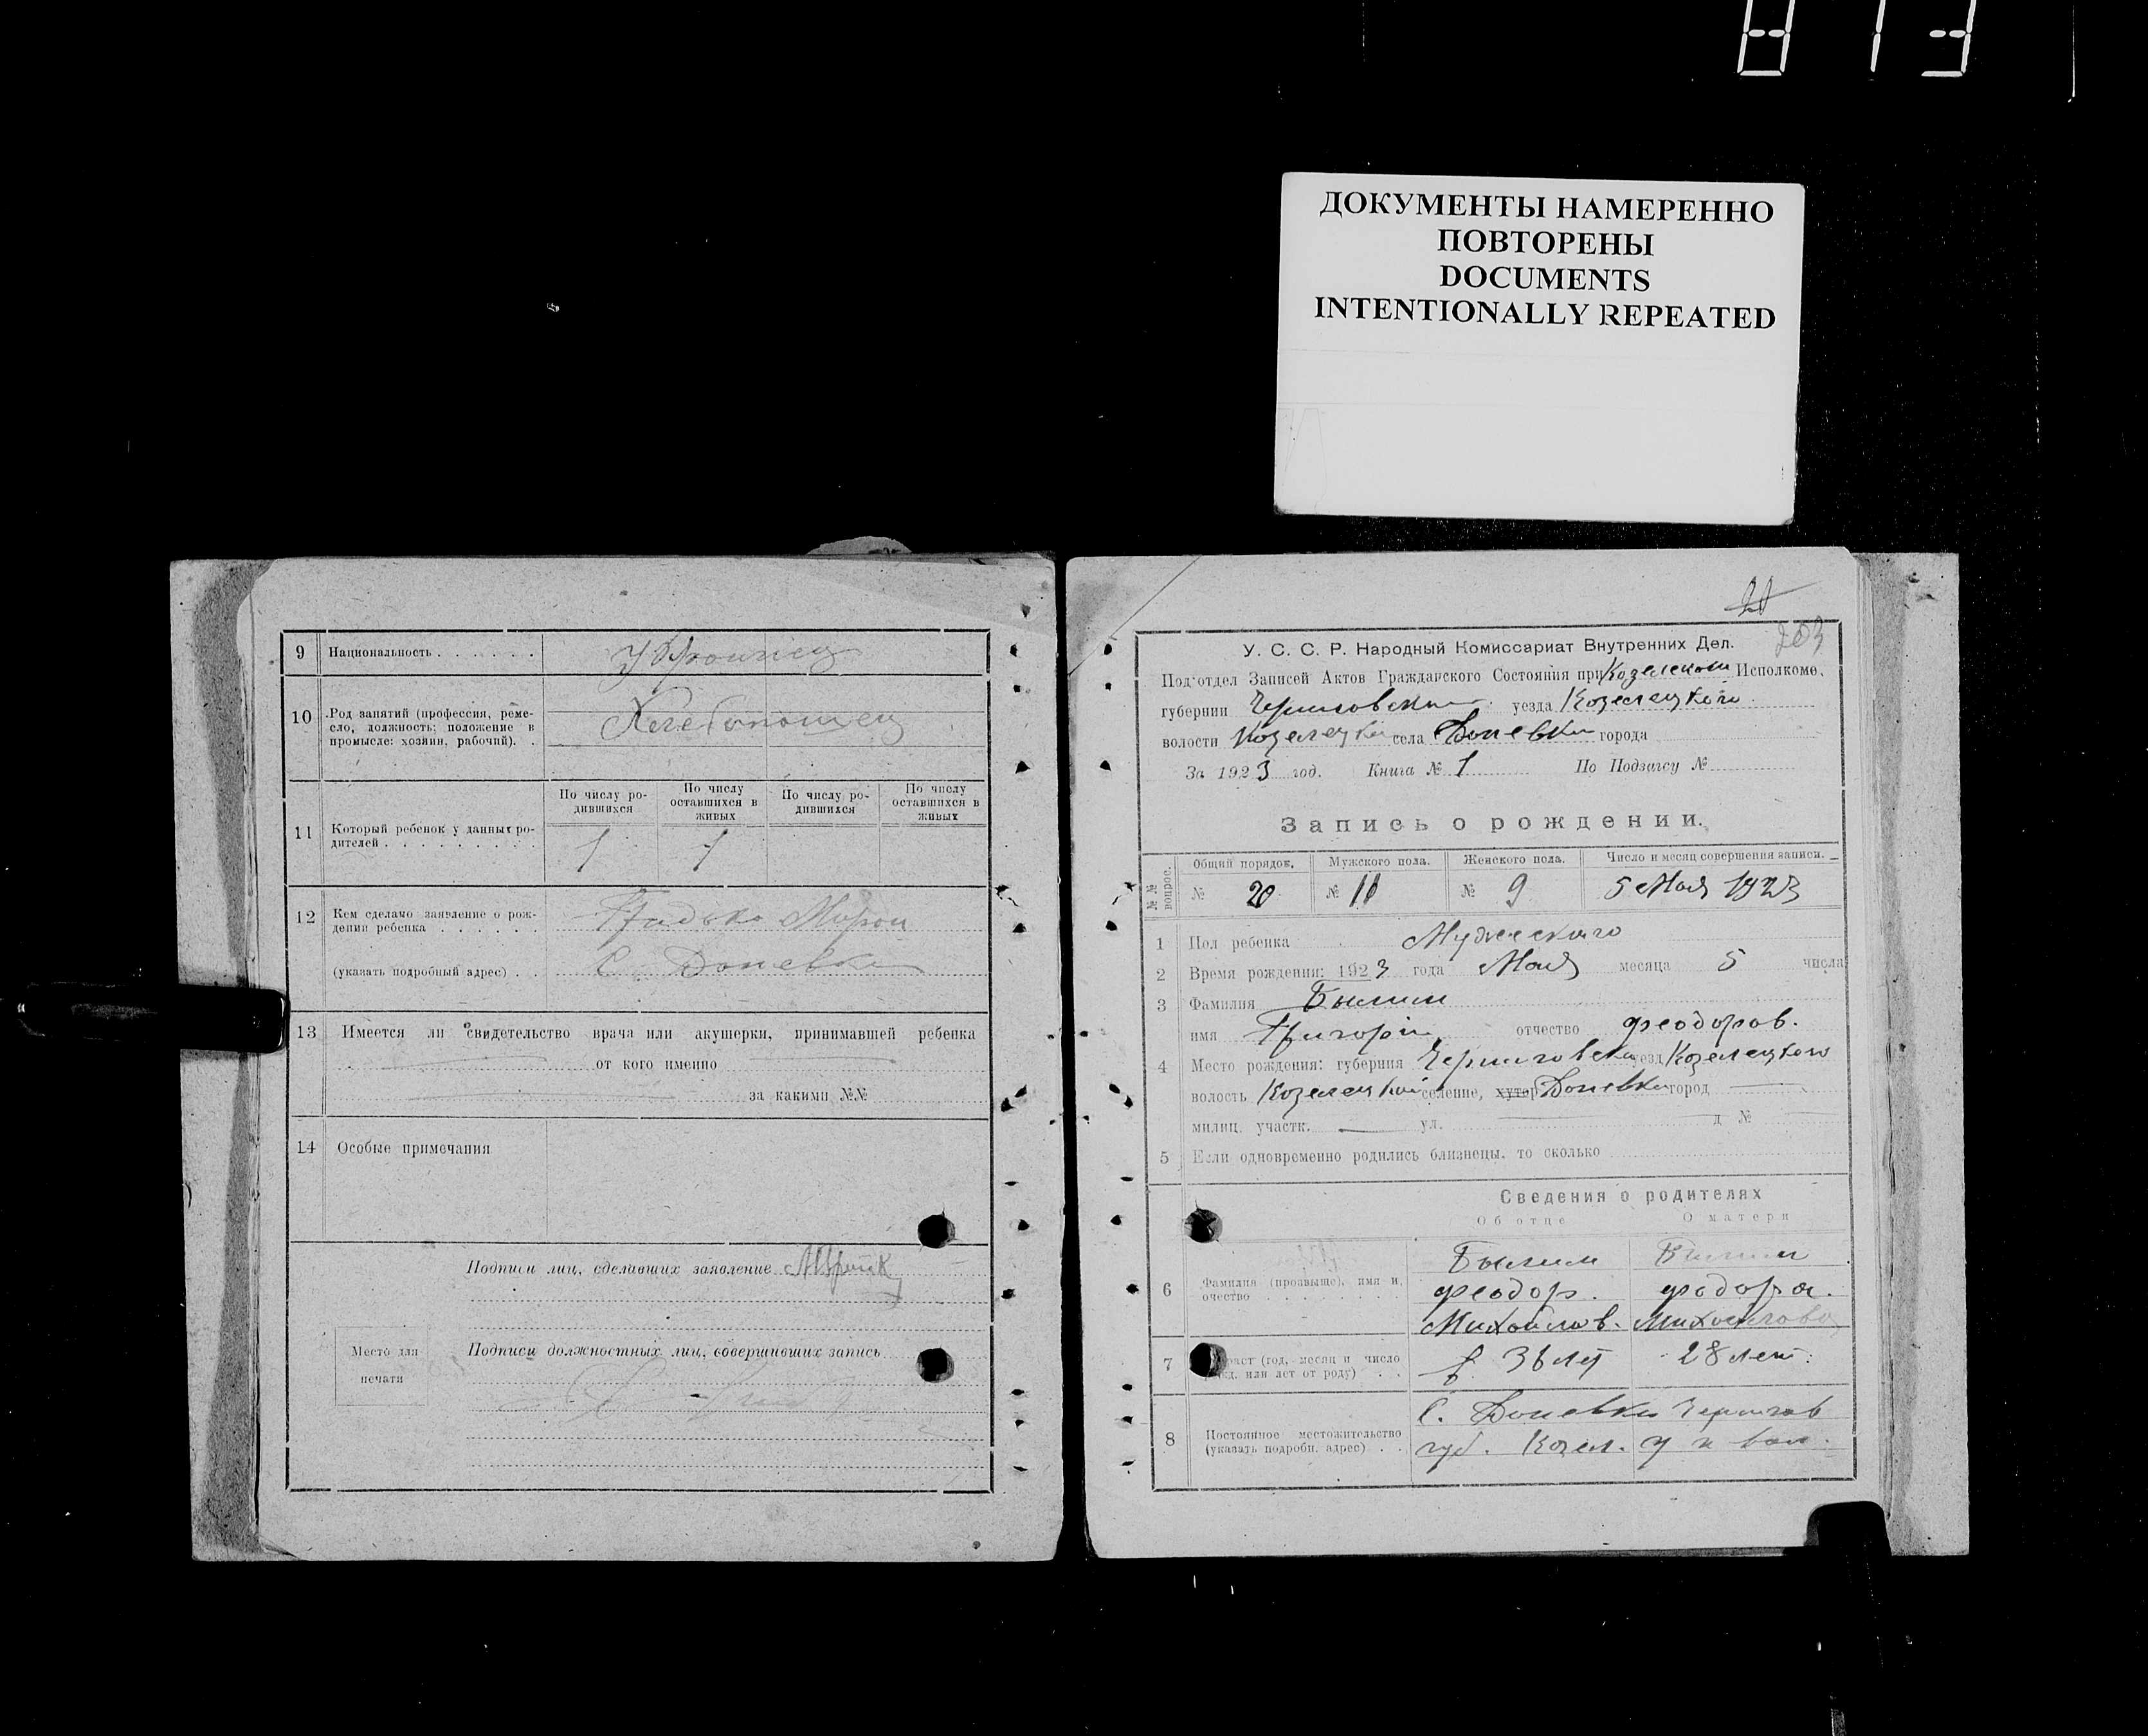 813
ДОКУМЕНТЫ НАМЕРЕННО
ПОВТОРЕНЫ
DOCUMENTS
INTENTIONALLY REPEATED
9 Национальность . . . . . .
10 Род занятий (профессия, реме-
сло, должность; положение в
промысле: хозяин, рабочий). .
11 Который ребенок у данных ро-
дителей . . . . . . . . .
По числу ро-
дившихся
По числу
оставшихся в
живых
По числу ро-
дившихся
По числу
оставшихся в
живых
1 1
12 Кем сделано заявление о рож-
дении ребенка . . . . . . Мирон
(указать подробный адрес) . . С. Доневка
13 Имеется ли свидетельство врача или акушерки, принимавшей ребенка
от кого именно
за какими №№
14 Особые примечания
Подписи лиц, сделавших заявление
Место для
печати
Подписи должностных лиц, совершивших запись
20
203
У. С. С. Р. Народный Комиссариат Внутренних Дел.
Под'отдел Записей Актов Гражданского Состояния при Исполкоме.
губернии Черниговской уезда Козелецкого
волости Козелецкой села Доневки города
За 1923 год. Книга № 1 По Подзагсу №
Запись о рождении.
№№ вопрос.
Общий порядок. Мужского пола. Женского пола. Число и месяц совершения записи.
№ 20 № 11 № 9 5 Мая 1923
1 Пол ребенка Мужеского
2 Время рождения: 1923 года Мая месяца 5 числа
3 Фамилия Былим
имя Григорій отчество Феодоров.
4 Место рождения: губерния уезд Козелецкого
волость Козелецкой селение, хутор Доневки город
милиц. участк. ул. д №
5 Если одновременно родились близнецы, то сколько
Сведения о родителях
Об отце О матери
6 Фамилия (прозвище), имя и,
очество . . . . . . . .
Былим Былим
Феодор.
Михайлов.
7 Возраст (год, месяц и число
рожд. или лет от роду) . . 36 лет 28 лет.
8 Постоянное местожительство
(указать подробн. адрес) . .
С. Доневки Чернигов
губ. Козел. у и вол.